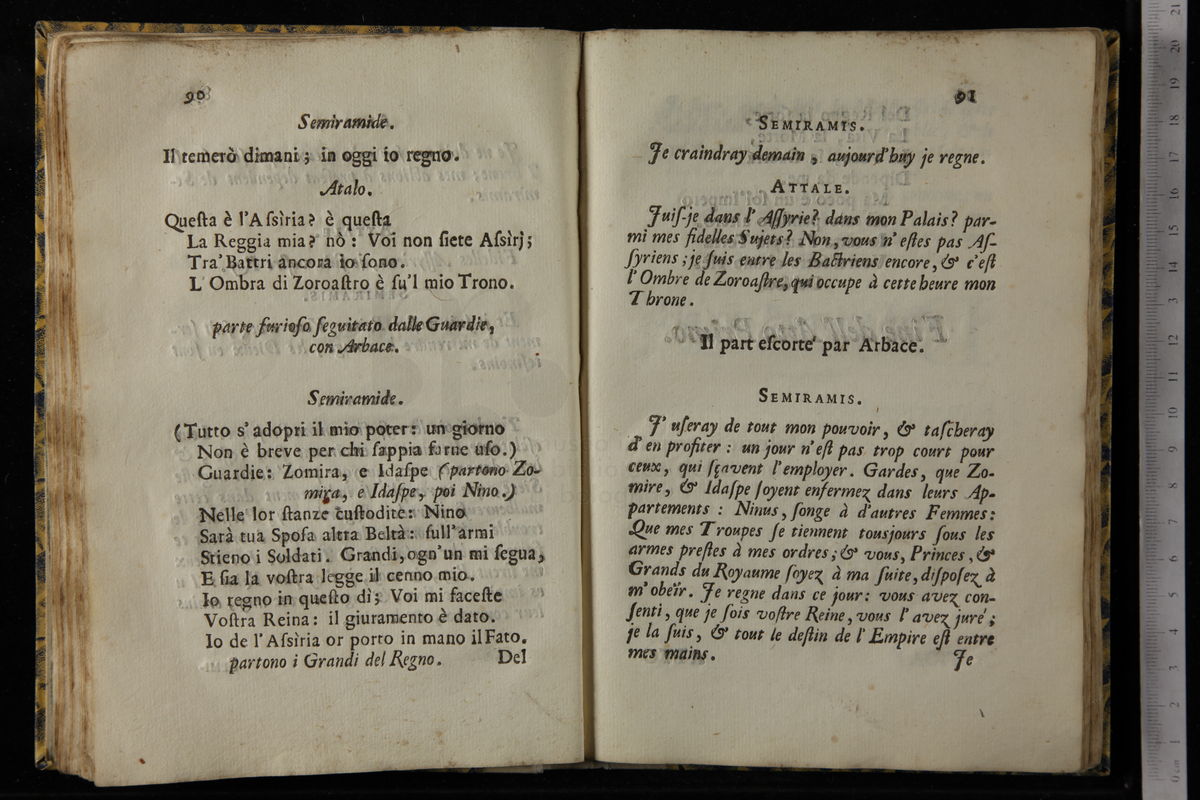 90
Semiramide.
Il temerò dimani; in oggi io regno.
Atalo.
Queſta è l'Aſsìria? è queſta
La Reggia mia? nò: Voi non ſiete Aſsìrj;
Tra' Battri ancora io ſono.
L'Ombra di Zoroaſtro è ſu'l mio Trono.
parte furioſo ſeguitato dalle Guardie,
con Arbace.
Semiramide.
(Tutto s'adopri il mio poter: un giorno
Non è breve per chi ſappia farne uſo.)
Guardie: Zomira, e Idaſpe (partono Zo-
mira, e Idaſpe, poi Nino.)
Nelle lor ſtanze cuſtodite: Nino
Sarà tua Spoſa altra Beltà: ſull'armi
Stieno i Soldati. Grandi, ogn'un mi ſegua,
E ſia la voſtra legge il cenno mio.
Io regno in queſto dì; Voi mi faceſte
Voſtra Reina: il giuramento è dato.
Io de l'Aſsìria or porto in mano il Fato.
partono i Grandi del Regno. Del
91
SEMIRAMIS.
Je craindray demain, aujourd'huy je regne.
ATTALE.
Juiſ-je dans l'Aſſyrie? dans mon Palais? par-
mi mes fidelles Sujets? Non, vous n'eſtes pas Aſ-
ſyriens; je ſuis entre les Bactriens encore, & c'eſt
l'Ombre de Zoroaſtre, qui occupe à cette heure mon
Throne.
Il part eſcorté par Arbace.
SEMIRAMIS.
J'uſeray de tout mon pouvoir, & taſcheray
d'en profiter: un jour n'eſt pas trop court pour
ceux, qui ſçavent l'employer. Gardes, que Zo-
mire, & Idaſpe ſoyent enfermez dans leurs Ap-
partements: Ninus, ſonge à d'autres Femmes:
Que mes Troupes ſe tiennent tousjours ſous les
armes preſtes à mes ordres; & vous, Princes, &
Grands du Royaume ſoyez à ma ſuite, diſpoſez à
m'obeïr. Je regne dans ce jour: vous avez con-
ſenti, que je ſois voſtre Reine, vous l'avez juré;
je la ſuis, & tout le deſtin de l'Empire eſt entre
mes mains. Je